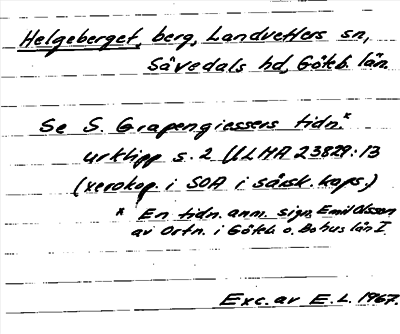 Helgeberget, berg, Landvetters sn,
Sävedals hd, Göteb. län.
Se S. Grapengiessers tidn.*
urklipp s. 2 ULMA 23829:13
(xerokop. i SOA i särsk. kaps.)
* En tidn. anm. sign. Emil Olsson
av Ortn. i Göteb. o. Bohus län I.
Exc. av E. L. 1967.